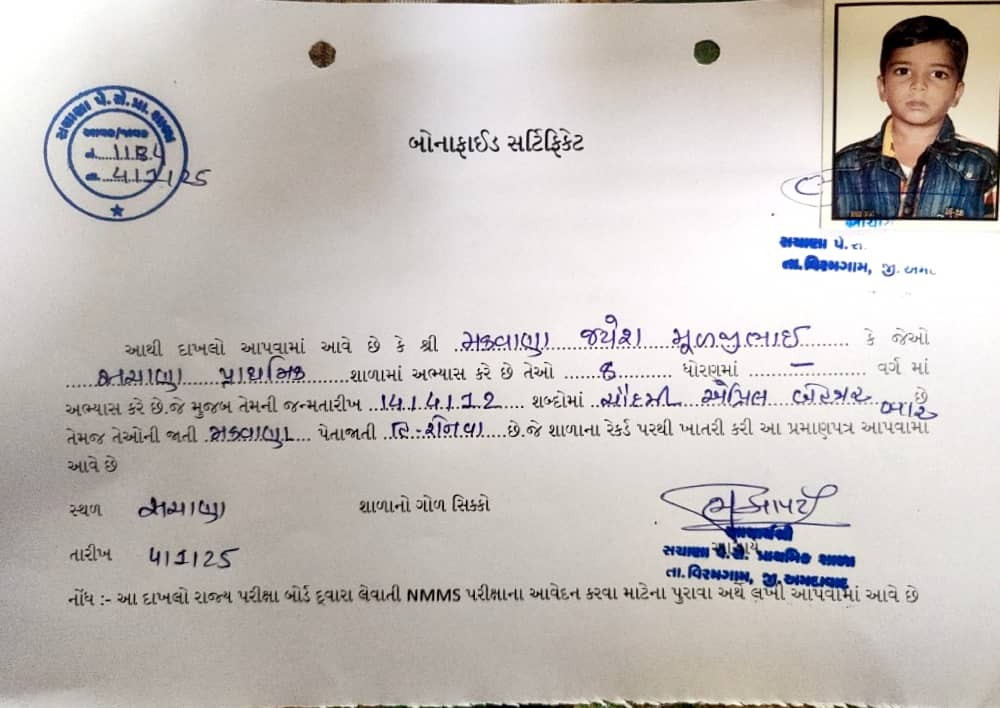 સચાણા પે.સે.પ્રા. શાળા
આવક/જાવક
નં. 1184
તા. 4/1/25
બોનાફાઈડ સર્ટિફિકેટ
સચાણા પે.સે.
તા.વિરમગામ, જી. અમદા
આથી દાખલો આપવામાં આવે છે કે શ્રી મકવાણા જયેશ મૂળજીભાઈ કે જેઓ
સચાણા પ્રાથમિક શાળામાં અભ્યાસ કરે છે તેઓ 8 ધોરણમાં – વર્ગ માં
અભ્યાસ કરે છે.જે મુજબ તેમની જન્મતારીખ 14/4/12 શબ્દોમાં ચૌદમી એપ્રિલ બે હજાર બાર છે
તેમજ તેઓની જાતી મકવાણા પેતાજાતી હિ-સેનવા છે.જે શાળાના રેકર્ડ પરથી ખાતરી કરી આ પ્રમાણપત્ર આપવામાં
આવે છે
સ્થળ સચાણા શાળાનો ગોળ સિક્કો
તારીખ 4/1/25
આચાર્યશ્રી
સચાણા પે.સે. પ્રાથમિક શાળા
તા.વિરમગામ, જી.અમદાવાદ
નોંધ :- આ દાખલો રાજ્ય પરીક્ષા બોર્ડ દ્વારા લેવાતી NMMS પરીક્ષાના આવેદન કરવા માટેના પુરાવા અર્થે લખી આપવામાં આવે છે